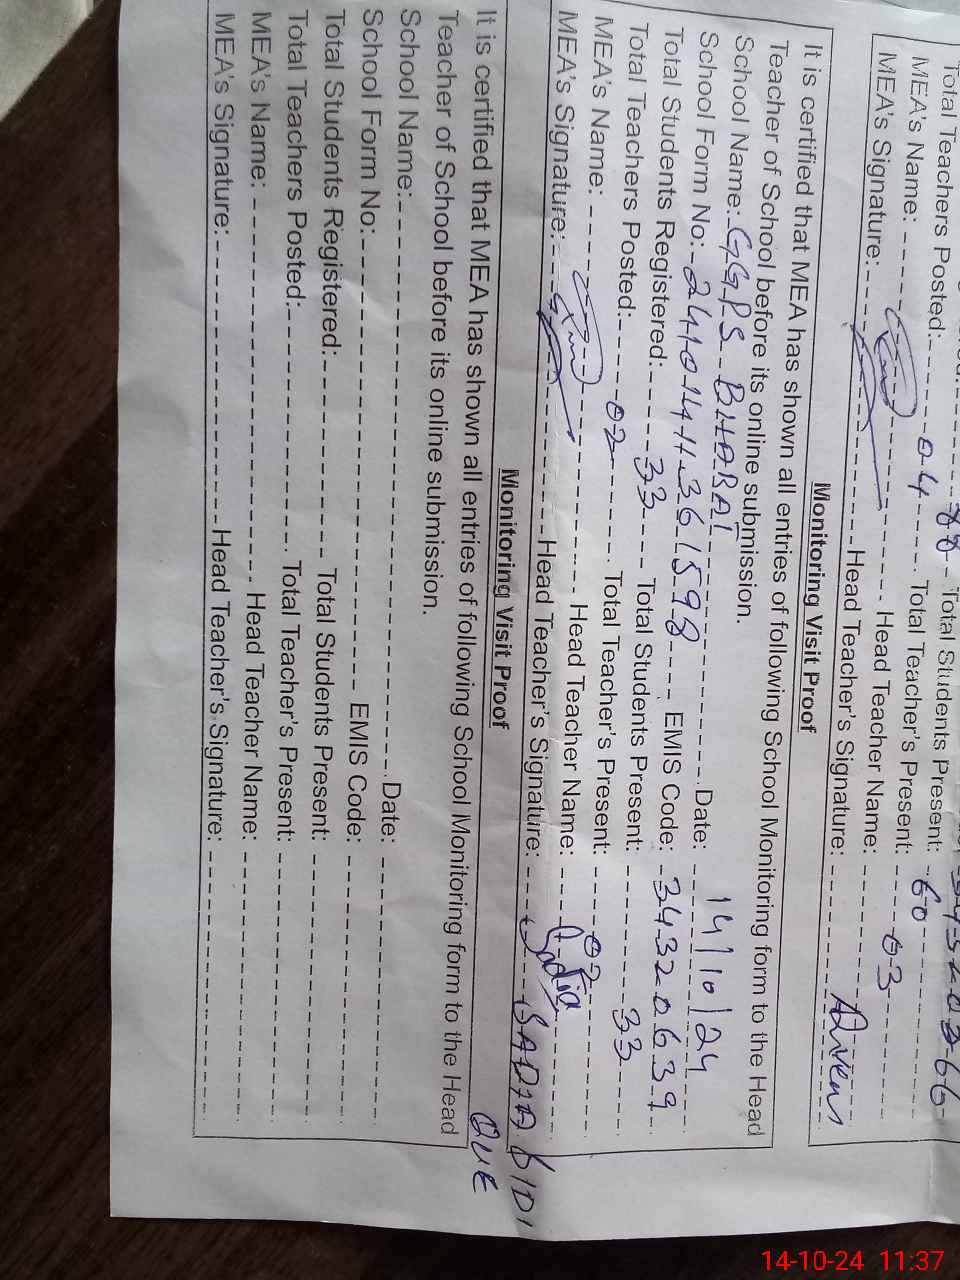 Total Students Present: 60
Total Teachers Posted: 04 Total Teacher's Present: 03
MEA's Name: Head Teacher Name:
MEA's Signature: Head Teacher's Signature:
Monitoring Visit Proof
It is certified that MEA has shown all entries of following School Monitoring form to the Head
Teacher of School before its online submission.
School Name: GGPS BHABAI Date: 14/10/24
School Form No: 2410141361598 EMIS Code: 34320639
Total Students Registered: 33 Total Students Present: 33
Total Teachers Posted: 02 Total Teacher's Present: 02
MEA's Name: Head Teacher Name: Sadia
MEA's Signature: Head Teacher's Signature: SADIA BIDI
Monitoring Visit Proof
It is certified that MEA has shown all entries of following School Monitoring form to the Head
Teacher of School before its online submission.
School Name: Date:
School Form No: EMIS Code:
Total Students Registered: Total Students Present:
Total Teachers Posted: Total Teacher's Present:
MEA's Name: Head Teacher Name:
MEA's Signature: Head Teacher's Signature:
14-10-24 11:37